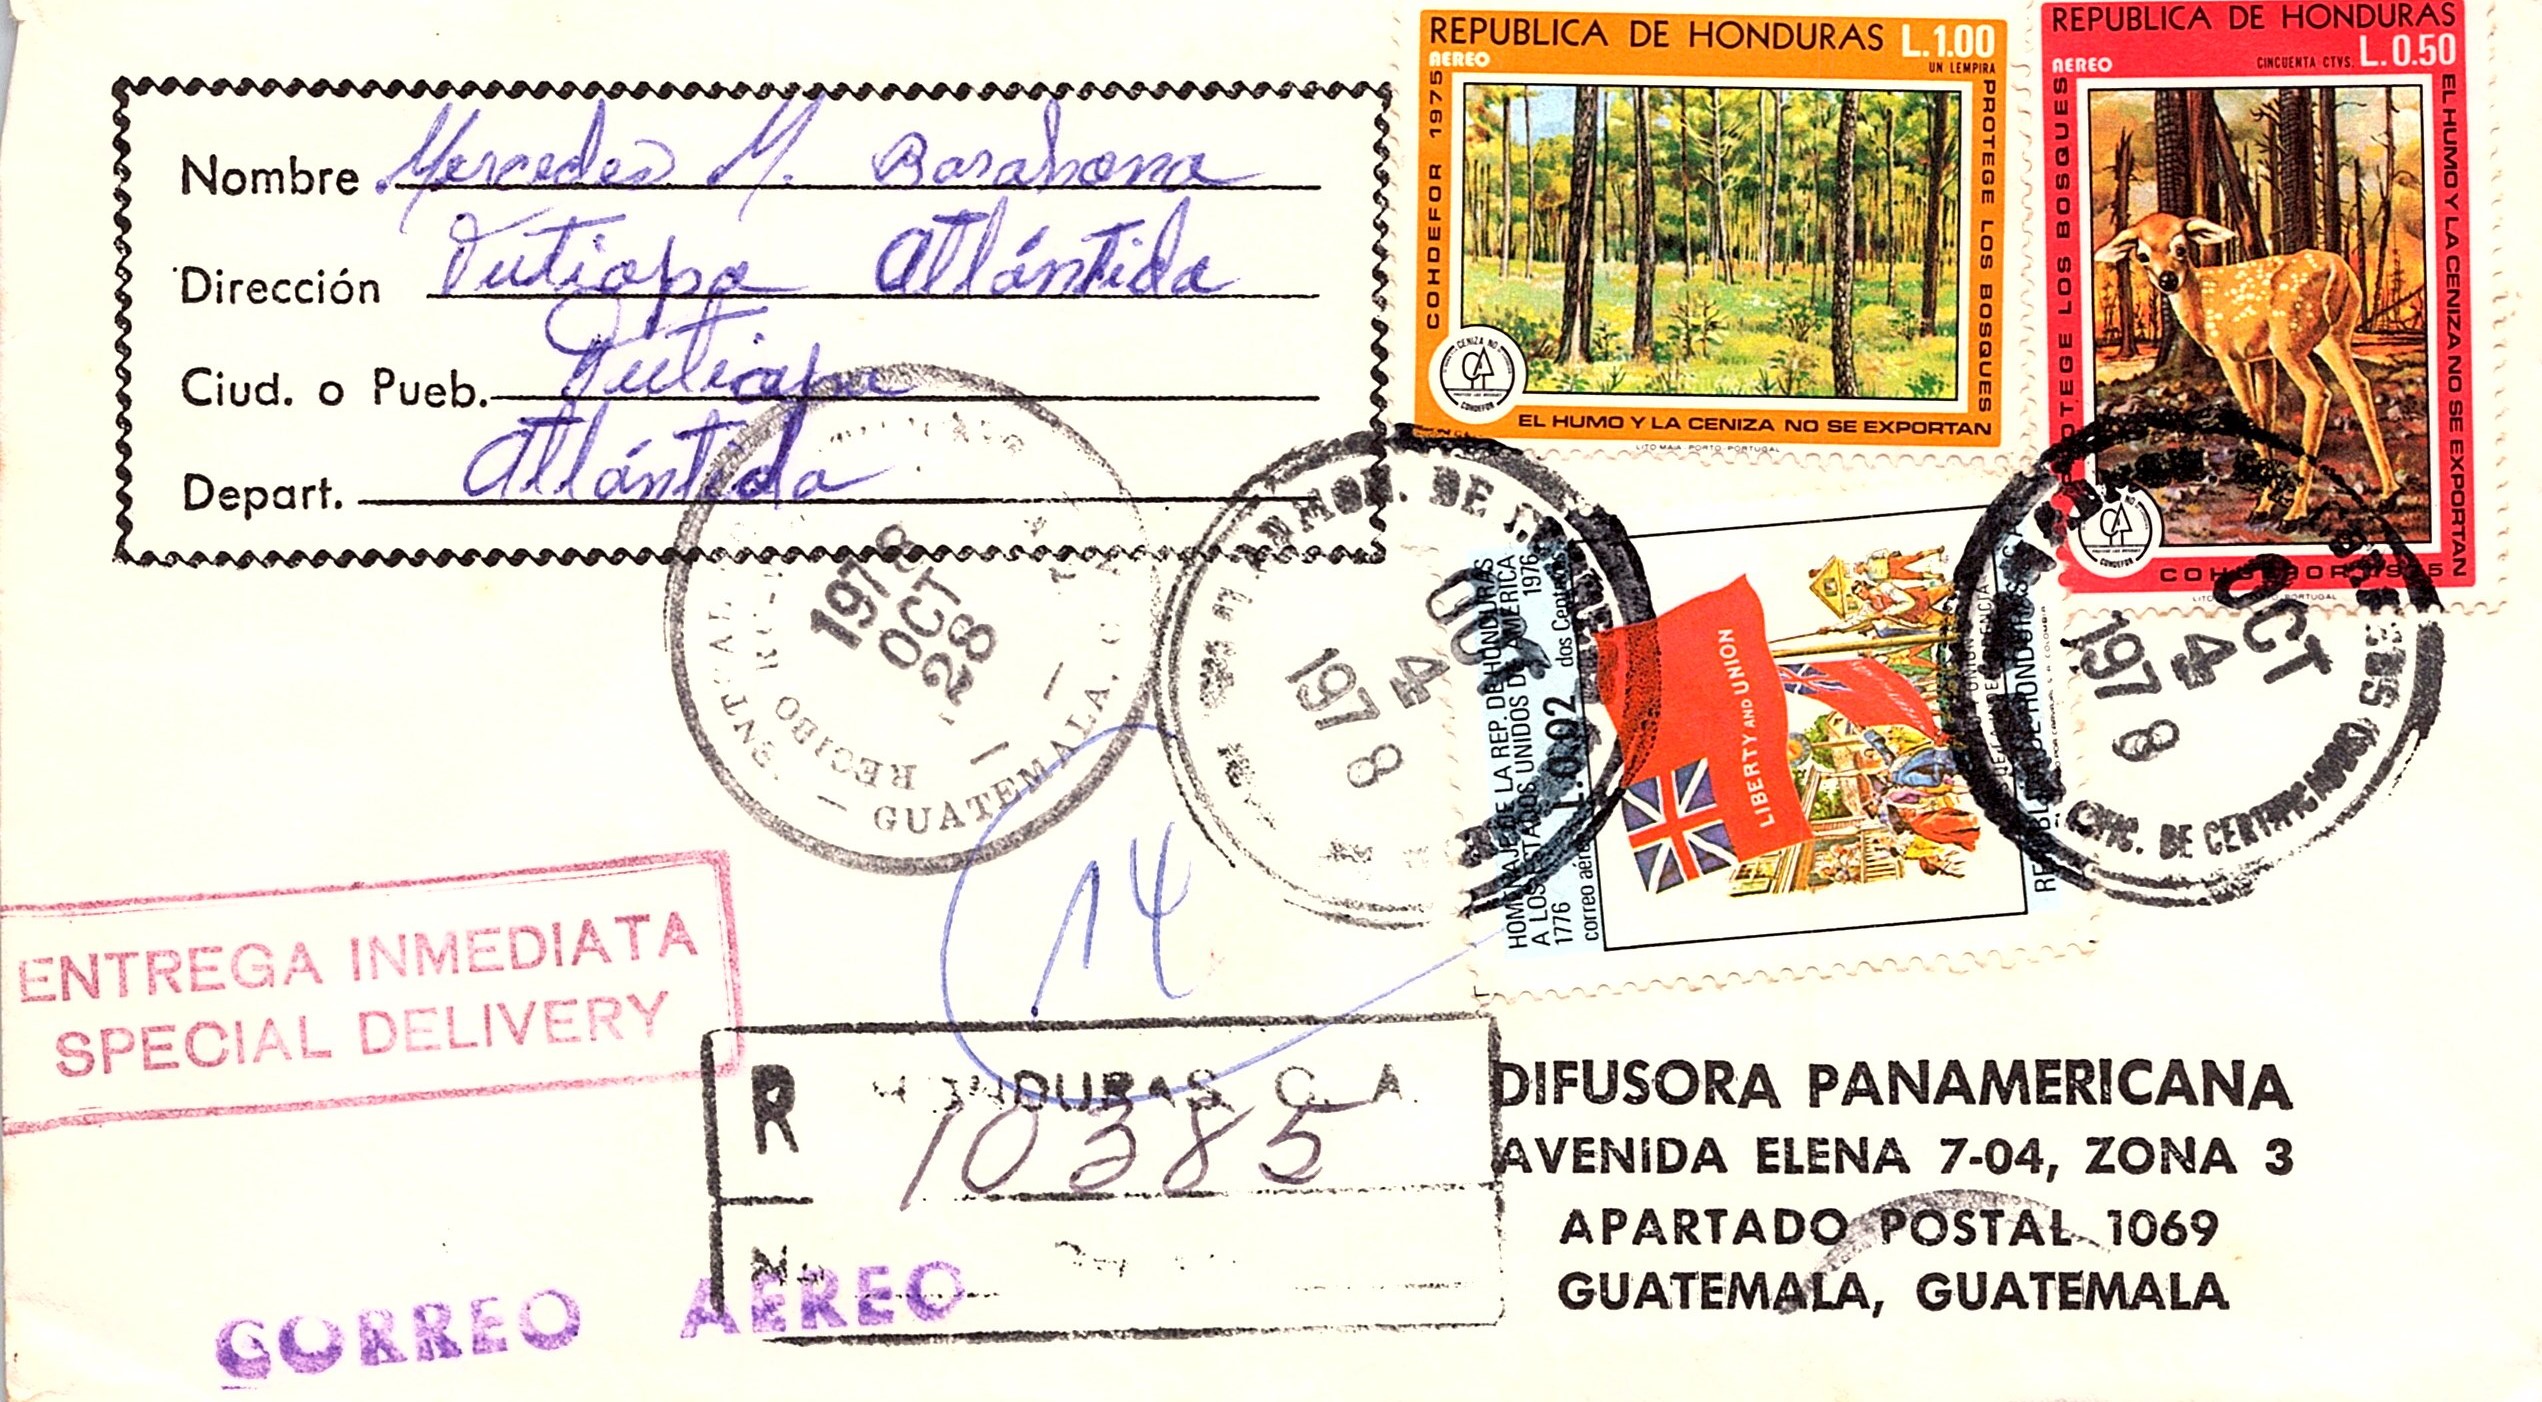 Nombre Mercedes M. Barahona
Dirección Jutiapa Atlántida
Ciud. o Pueb. Jutiapa
Depart. Atlántida
REPUBLICA DE HONDURAS L.1.00
AEREO UN LEMPIRA
COHDEFOR 1975
PROTEGE LOS BOSQUES
CENIZA NO
COHDEFOR
EL HUMO Y LA CENIZA NO SE EXPORTAN
LITO MAIA PORTO PORTUGAL
REPUBLICA DE HONDURAS
AEREO CINCUENTA CTVS. L.0.50
PROTEGE LOS BOSQUES
EL HUMO Y LA CENIZA NO SE EXPORTAN
COHDEFOR 1975
HOMENAJE DE LA REP. DE HONDURAS
A LOS ESTADOS UNIDOS DE AMERICA
1776 1976
correo aéreo L.0.02 dos Centavos
LIBERTY AND UNION
1978
OCT
28
RECIBO
GUATEMALA, C.A.
OCT
4
1978
OCT
4
1978
OFIC. DE CERTIFICADOS
14
ENTREGA INMEDIATA
SPECIAL DELIVERY
R HONDURAS C. A.
10385
No.
CORREO AEREO
DIFUSORA PANAMERICANA
AVENIDA ELENA 7-04, ZONA 3
APARTADO POSTAL 1069
GUATEMALA, GUATEMALA